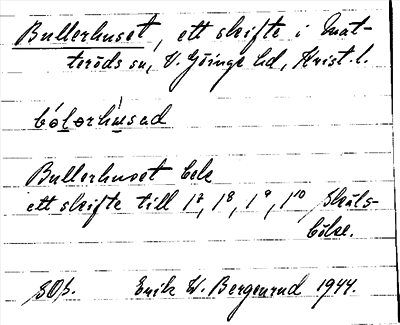 Bullerhuset, ett skifte i Mat-
teröds sn, V. Göinge hd, Krist. l.
bólərhùsad
Bullerhuset bek
ett skifte till 1⁷, 1⁸, 1⁹, 1¹⁰ Skäls-
böke.
SOS. Erik W. Bergenrud 1944.